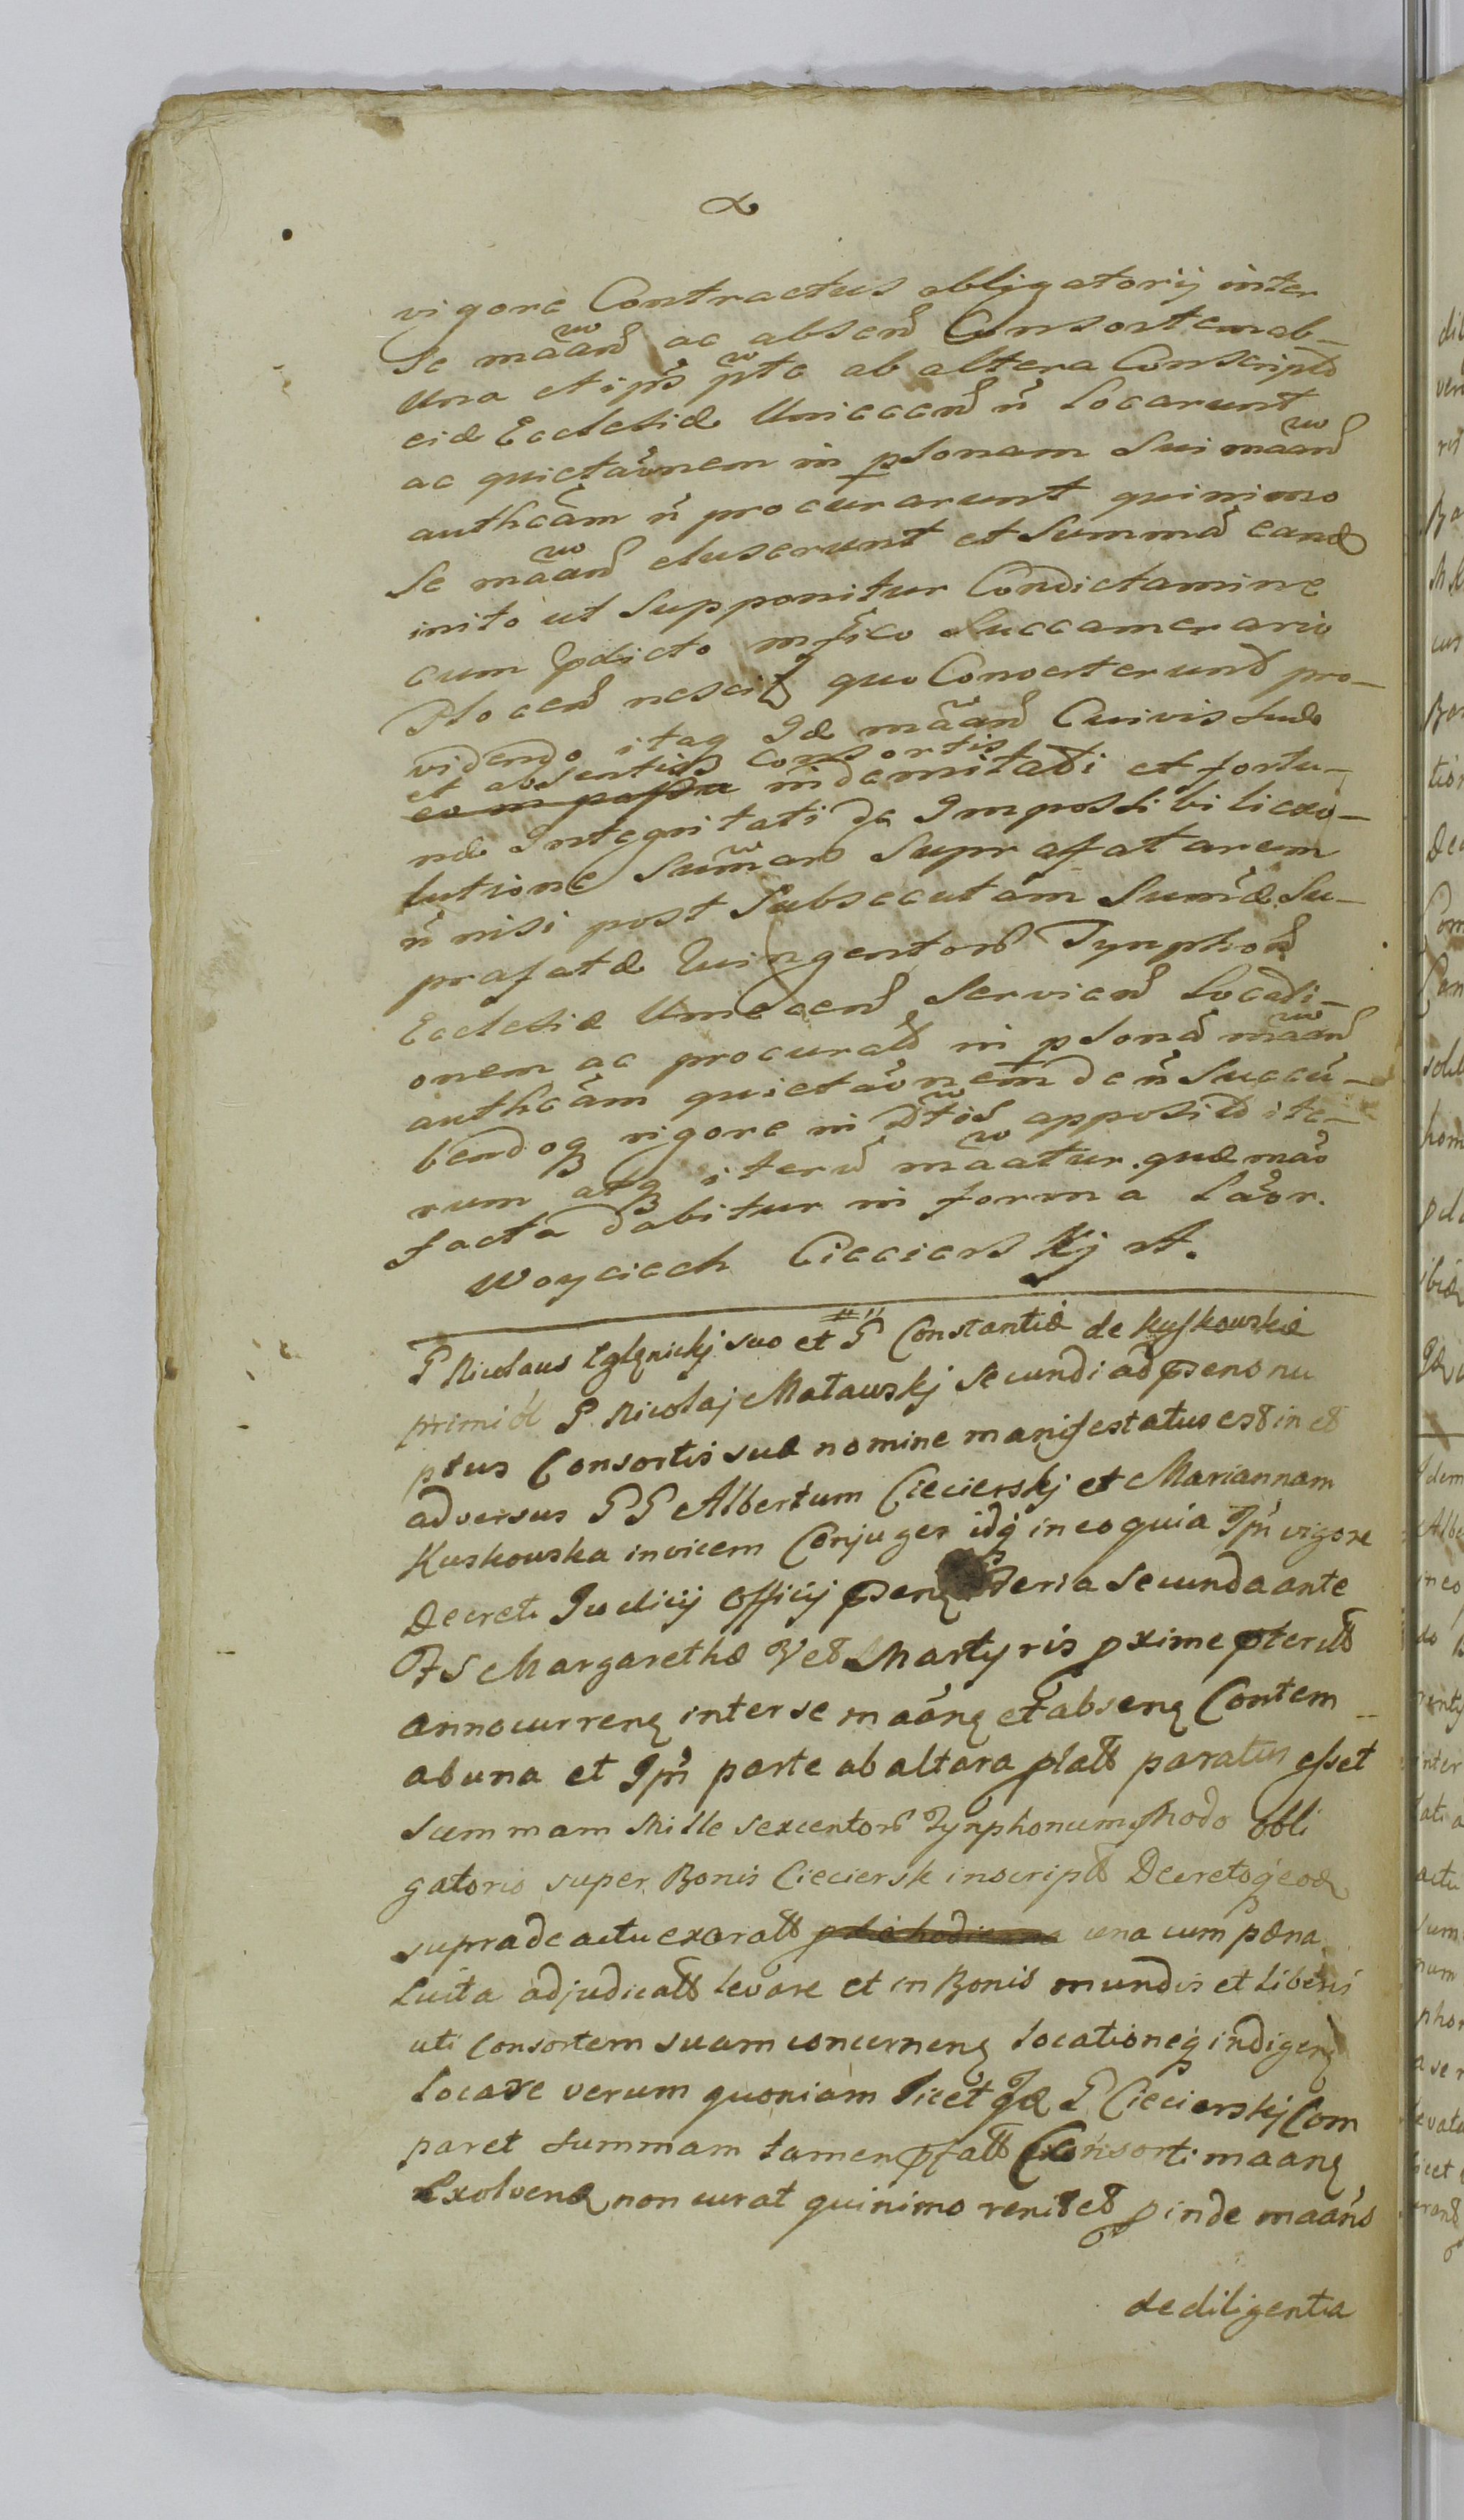 vigore Contractus obligatorij inter
se maan ac absen Consortem ab-
una et ipo pte ab altera Conscript
eid Ecclesiæ Uniecen n Locarunt
ac quietaonem in psonam sui maan
authcam n procurarunt quinimo
se maan eluserunt et Summa eand
inito ut supponitur Condictamine
cum pdicto mfico Succamerario
Plocen nescit quo Converterunt pro-
videndo itaq Id maan Cuivis suæ
et absentis consortis
eo in passu indemnitati et fortu-
næ Integritati de Impossibili exo-
lutione Sumar suprafatarum
n nisi post subsecutam Sumæ su-
prafatæ Quingentor Tynphon
Ecclesiæ Uniecen servien Locati-
onem ac procurat in psona maan
authcam quietaonem de n succu-
bendoq rigore in dtis apposit ite-
rum atq iteru maatur. quæ mao
facta dabitur in forma Laor.
Woyciech Cieciersky A.
G Nicolaus Zglenickj suo et G Constantiæ de Kuskowskie
primi ol G Nicolaj Mataws kj secundi ad psens nu
ptus Consortis suæ nomine manifestatus est in et
adversus GG Albertum Ciecierskj et Mariannam
Kuskowska invicem Conjuges idq in eo quia Ipn vigore
Decreti Judicij Officij psen feria secunda ante
F S Margarethæ V et Martyris pxime pterit
anno curren inter se maan et absen Contem
ab una et Ipn parte ab altara plat paratus esset
summam Mille sexcentor Tynphonum Modo obli
gatorio super Bonis Cieciersk inscript Decretoq eod
suprade actu exarat pdie hodierna una cum pæna
Luita adjudicat levare et in Bonis mundis et Liberis
uti Consortem suam concernen Locationeq indigen
Locare verum quoniam licet Id G Ciecierskj Com
paret summam tamen pfat Consorti maan
Exolvend non curat quinimo renitet pinde maans
de diligentia